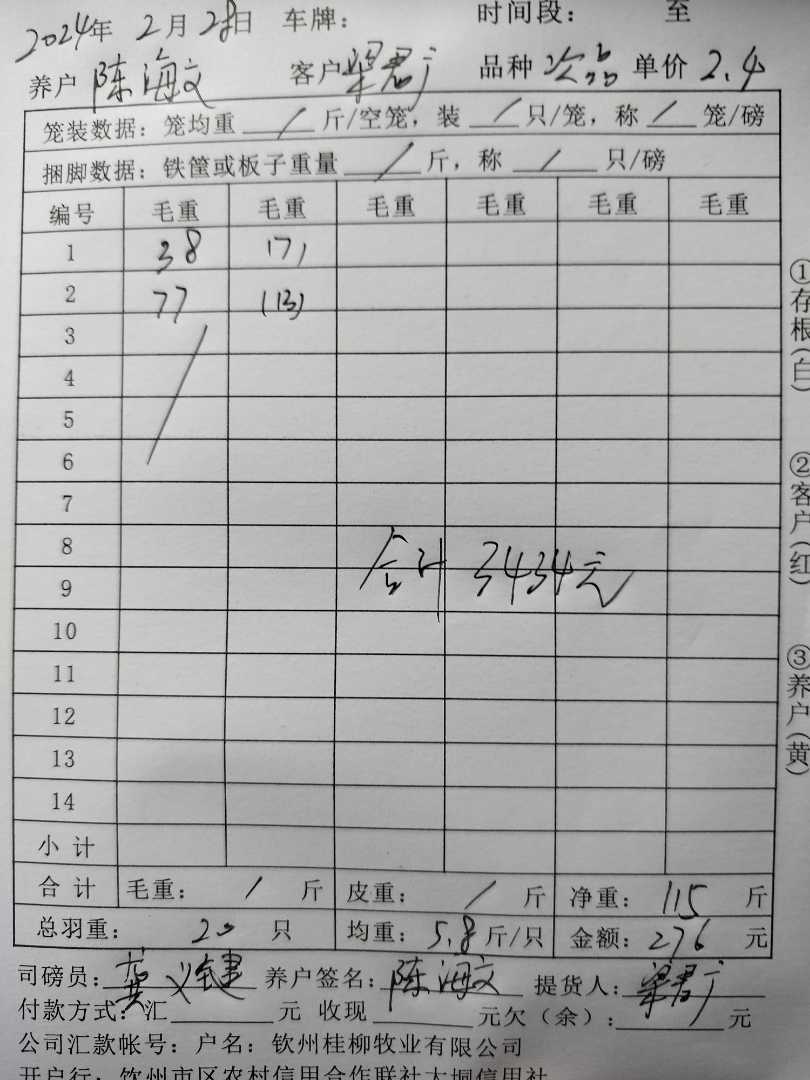 2024年 2月28日 车牌: 时间段: 至
养户 陈海文 客户 梁君广 品种 次品 单价 2.4
笼装数据: 笼均重 / 斤/空笼, 装 / 只/笼, 称 / 笼/磅
捆脚数据: 铁筐或板子重量 / 斤, 称 / 只/磅
编号 毛重 毛重 毛重 毛重 毛重 毛重
1 38 (7)
2 77 (13)
3
4
5
6
7
8 合计 3434元
9
10
11
12
13
14
小 计
合 计 毛重: / 斤 皮重: / 斤 净重: 115 斤
总羽重: 20 只 均重: 5.8 斤/只 金额: 276 元
司磅员: 龚义键 养户签名: 陈海文 提货人: 梁君广
付款方式: 汇 元 收现 元欠(余): 元
公司汇款帐号: 户名: 钦州桂柳牧业有限公司
开户行: 钦州市区农村信用合作联社大垌信用社
①存根(白) ②客户(红) ③养户(黄)